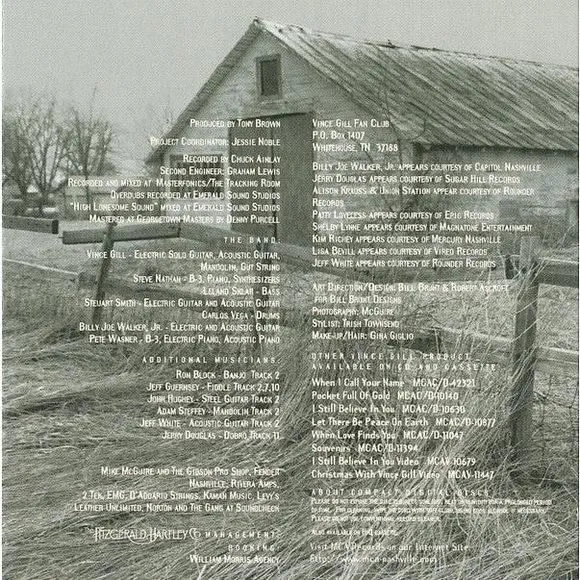 Produced by Tony Brown
Project Coordinator: Jessie Noble
Recorded by Chuck Ainlay
Second Engineer: Graham Lewis
Recorded and mixed at Masterfonics/The Tracking Room
Overdubs recorded at Emerald Sound Studios
"High Lonesome Sound" mixed at Emerald Sound Studios
Mastered at Georgetown Masters by Denny Purcell
THE BAND:
Vince Gill - Electric Solo Guitar, Acoustic Guitar,
Mandolin, Gut String
Steve Nathan - B-3, Piano, Synthesizers
Leland Sklar - Bass
Steuart Smith - Electric Guitar and Acoustic Guitar
Carlos Vega - Drums
Billy Joe Walker, Jr. - Electric and Acoustic Guitar
Pete Wasner - B-3, Electric Piano, Acoustic Piano
ADDITIONAL MUSICIANS:
Ron Block - Banjo Track 2
Jeff Guernsey - Fiddle Track 2,7,10
John Hughey - Steel Guitar Track 2
Adam Steffey - Mandolin Track 2
Jeff White - Acoustic Guitar Track 2
Jerry Douglas - Dobro Track 11
Mike McGuire and The Gibson Pro Shop, Fender
Nashville, Rivera Amps,
2 Tek, EMG, D'Addario Strings, Kaman Music, Levy's
Leather Unlimited, Norton and The Gang at Soundcheck
The Fitzgerald Hartley Co MANAGEMENT:
BOOKING:
William Morris Agency
Vince Gill Fan Club
P.O. Box 1407
Whitehouse, TN 37188
Billy Joe Walker, Jr. appears courtesy of Capitol Nashville
Jerry Douglas appears courtesy of Sugar Hill Records
Alison Krauss & Union Station appear courtesy of Rounder
Records
Patty Loveless appears courtesy of Epic Records
Shelby Lynne appears courtesy of Magnatone Entertainment
Kim Richey appears courtesy of Mercury Nashville
Lisa Bevill appears courtesy of Vireo Records
Jeff White appears courtesy of Rounder Records
Art Direction/Design: Bill Brunt & Robert Ascroft
for Bill Brunt Designs
Photography: McGuire
Stylist: Trish Townsend
Make-up/Hair: Gina Giglio
OTHER VINCE GILL PRODUCT
AVAILABLE ON CD AND CASSETTE
When I Call Your Name MCAC/D-42321
Pocket Full Of Gold MCAC/D-10140
I Still Believe In You MCAC/D-10630
Let There Be Peace On Earth MCAC/D-10877
When Love Finds You MCAC/D-11047
Souvenirs MCAC/D-11394
I Still Believe In You Video MCAV-10679
Christmas With Vince Gill Video MCAV-11447
ABOUT COMPACT DIGITAL DISCS
Please do not expose the disc to direct sunlight, heat or humidity for a prolonged period
of time. For cleaning, wipe the disc with soft cloth, using ethyl alcohol if necessary.
Please do not use conventional record cleaner.
Also available on HQ cassette.
Visit MCA Records on our Internet Site
http://www.mca-nashville.com